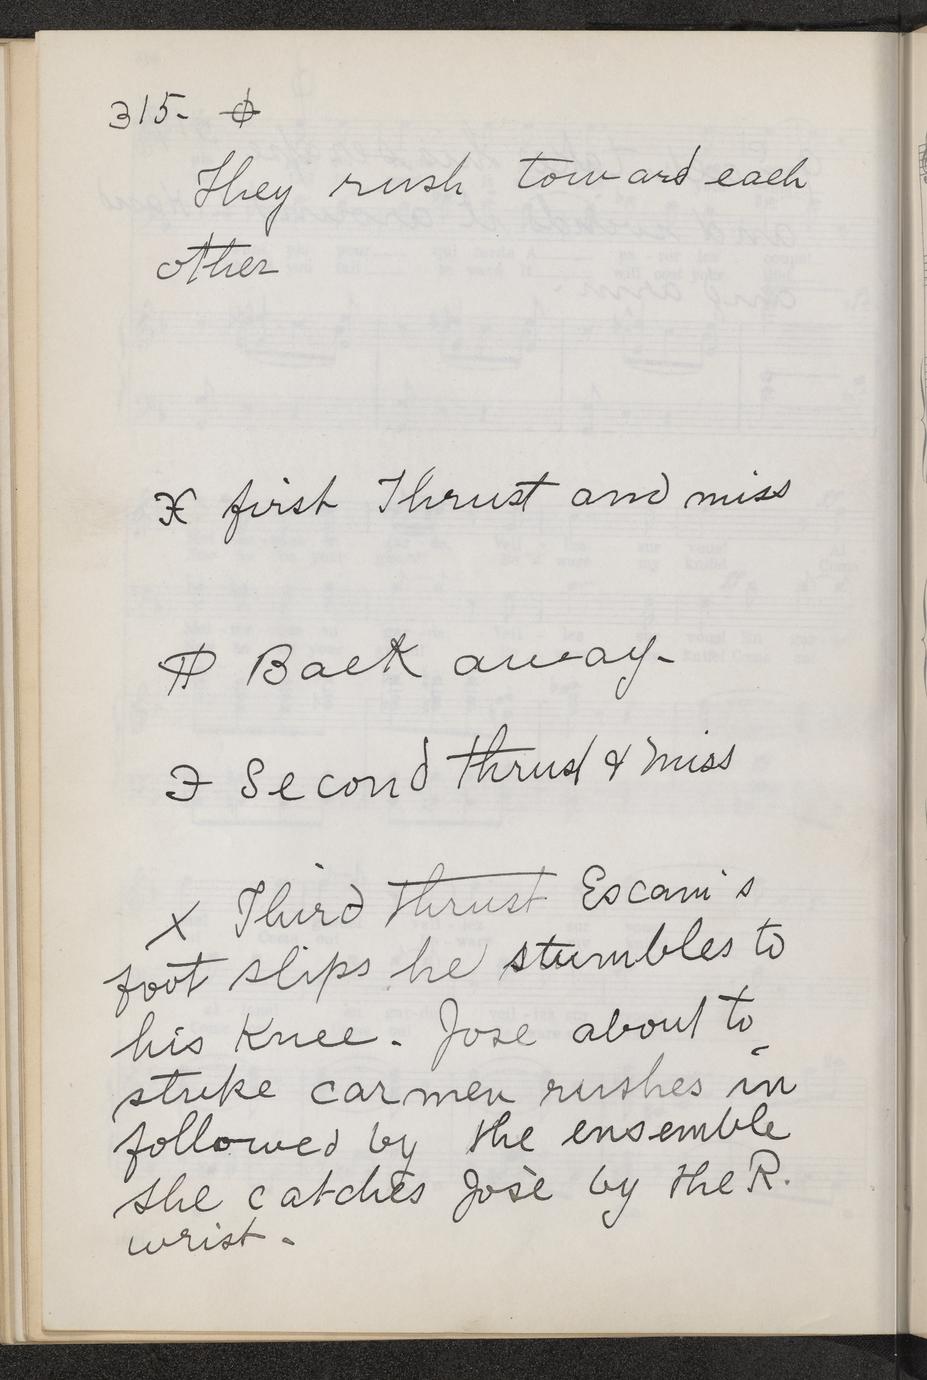 315-
They rush toward each
other
first Thrust and miss
Back away-
Second thrust & miss
X Third thrust Escami's
foot slips he stumbles to
his Knee. Jose about to
strike carmen rushes in
followed by the ensemble
she catches José by the R.
wrist.